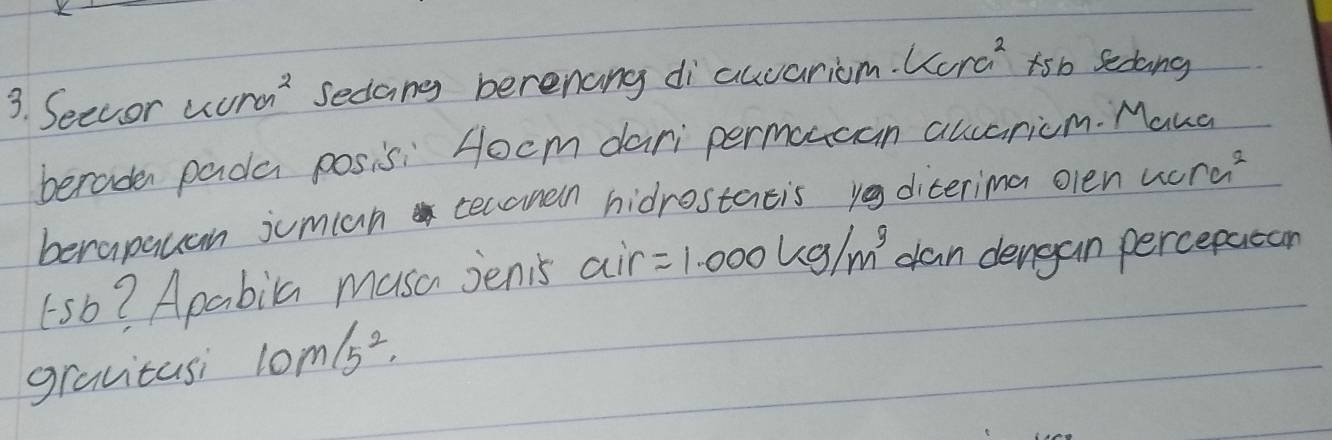 3. Seekor kura² sedang berenang di akuarium. Kura² tsb sedang
berada pada posisi 40cm dari permukaan akuarium. Maka
berapakah jumlah tekanan hidrostatis yg diterima oleh kura²
tsb? Apabila masa jenis air = 1.000 kg/m³ dan dengan percepatan
gravitasi 10 m/s².